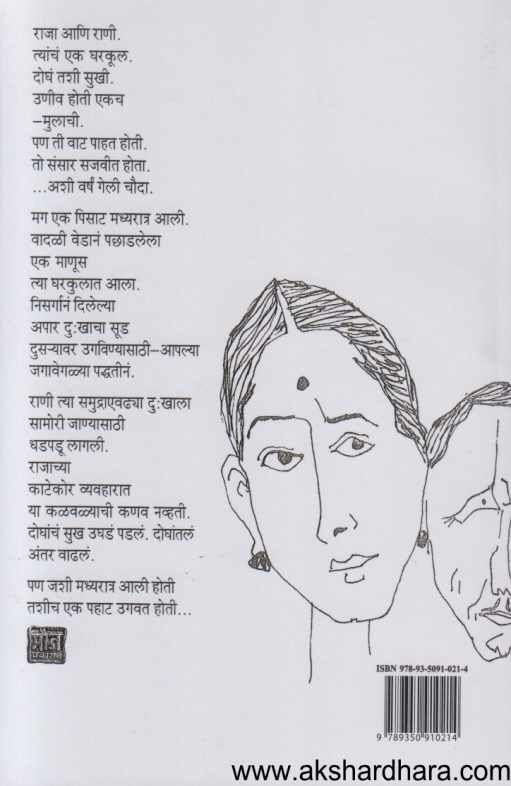 राजा आणि राणी.
त्यांचं एक घरकूल.
दोघं तशी सुखी.
उणीव होती एकच
–मुलाची.
पण ती वाट पाहत होती.
तो संसार सजवीत होता.
...अशी वर्षं गेली चौदा.
मग एक पिसाट मध्यरात्र आली.
वादळी वेडानं पछाडलेला
एक माणूस
त्या घरकुलात आला.
निसर्गानं दिलेल्या
अपार दु:खाचा सूड
दुसऱ्यावर उगविण्यासाठी–आपल्या
जगावेगळ्या पद्धतीनं.
राणी त्या समुद्राएवढ्या दु:खाला
सामोरी जाण्यासाठी
धडपडू लागली.
राजाच्या
काटेकोर व्यवहारात
या कळवळ्याची कणव नव्हती.
दोघांचं सुख उघडं पडलं. दोघांतलं
अंतर वाढलं.
पण जशी मध्यरात्र आली होती
तशीच एक पहाट उगवत होती...
मौज
प्रकाशन
ISBN 978-93-5091-021-4
9 789350 910214
www.akshardhara.com